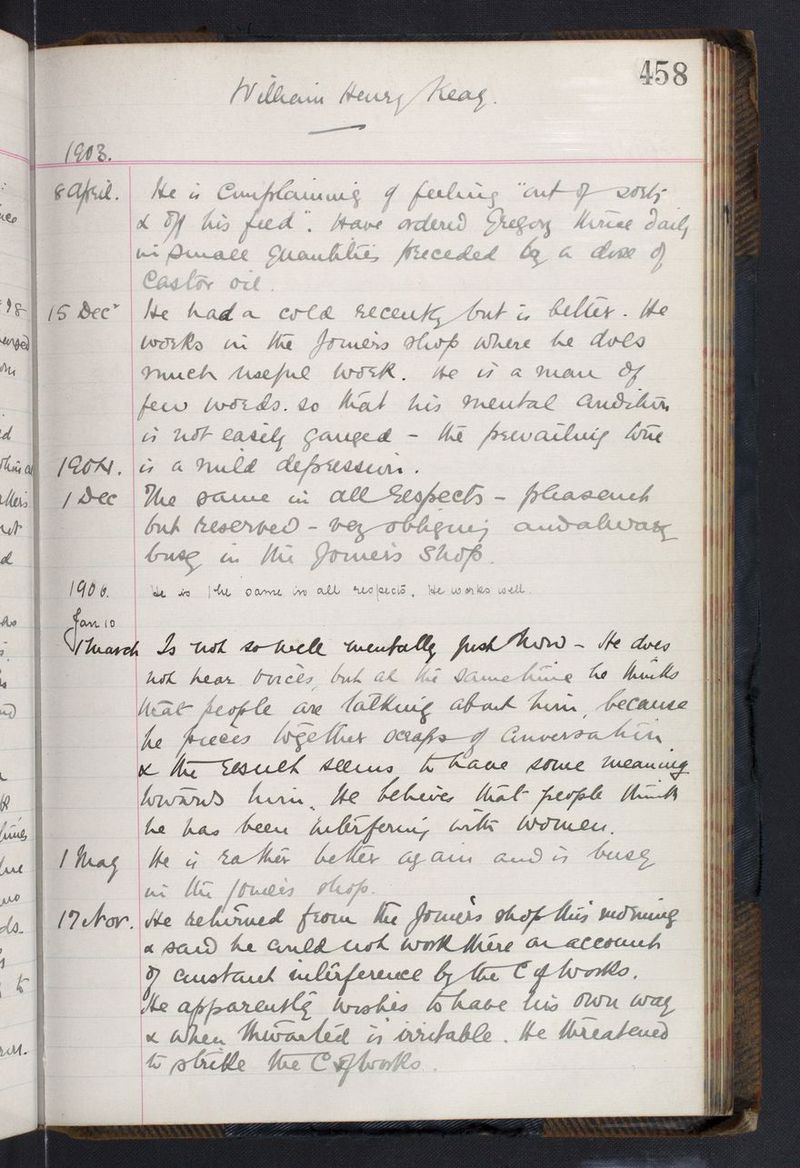 458
William Henry Keay.
1903.
8 April. He is complaining of feeling "out of sorts
& off his feed". Have ordered Gregory thrice daily
in small quantities preceded by a dose of
Castor oil.
15 Decr He had a cold recently but is better. He
works in the Joiners shop where he does
much useful work. He is a man of
few words. so that his mental condition
is not easily gauged - the prevailing tone
1904. is a mild depression.
1 Dec The same in all respects - pleasant
but reserved - very obliging and always
busy in the Joiners Shop.
1906. He is the same in all respects. He works well.
Jan 10
1 March Is not so well mentally just now - He does
not hear voices, but at the same time he thinks
that people are talking about him, because
he pieces together scraps of conversation
& the result seems to have some meaning
towards him. He believes that people think
he has been interfering with women.
1 May He is rather better again and is busy
in the joiners shop.
17 Nov. He returned from the Joiners shop this morning
& said he could not work there on account
of constant interference by the C of Works.
He apparently wishes to have his own way
& when thwarted is irritable. He threatened
to strike the C of Works.